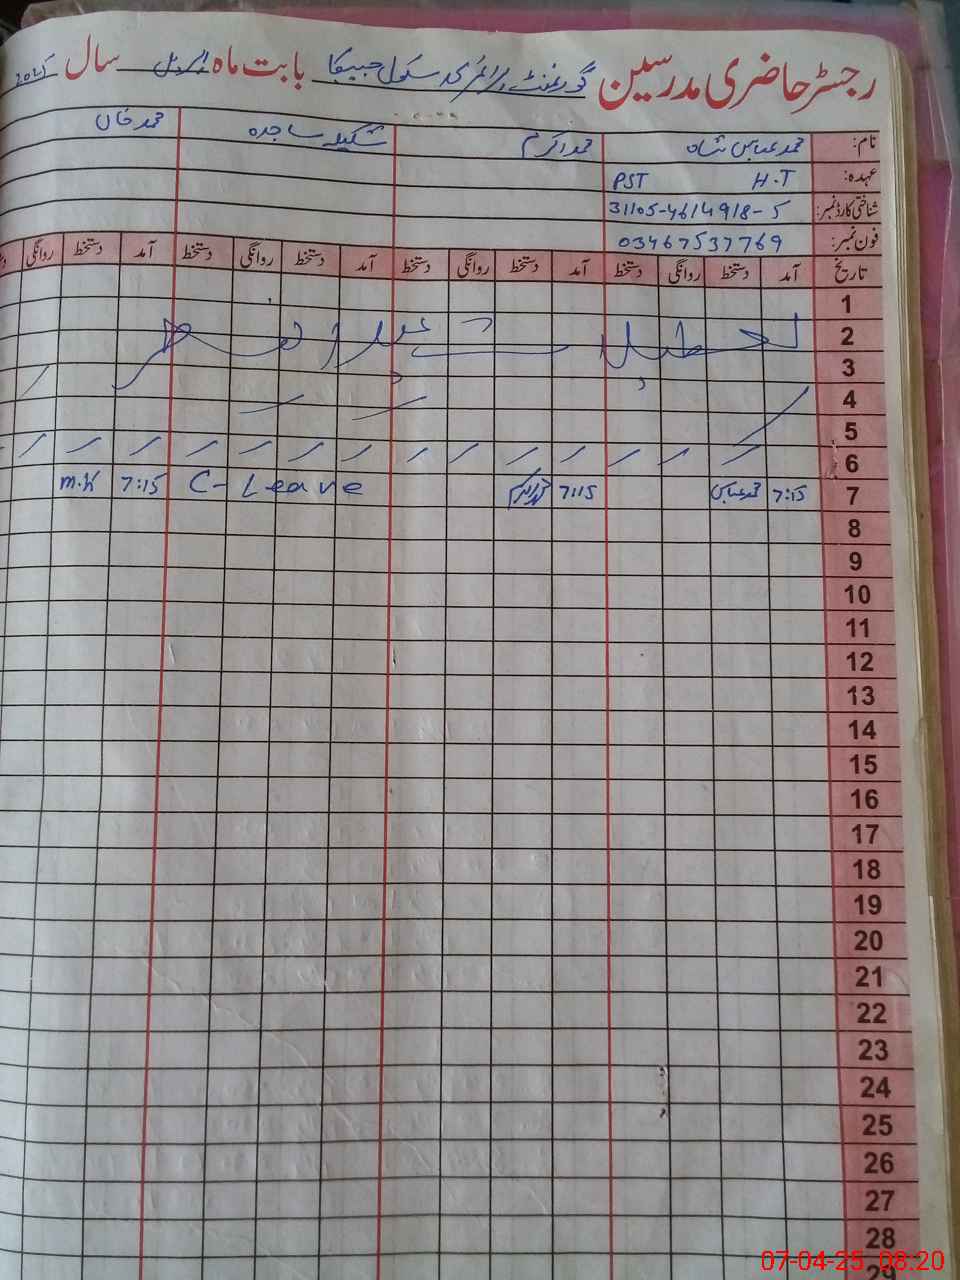 رجسٹر حاضری مدرسین گورنمنٹ پرائمری سکول حبیبکا بابت ماہ اپریل سال 2025
نام: محمد عباس شاہ محمد اکرم شکیلہ ساجدہ محمد خان
عہدہ: H.T PST
شناختی کارڈ نمبر: 31105-4614918-5
فون نمبر: 03467537769
تاریخ آمد دستخط روانگی دستخط آمد دستخط روانگی دستخط آمد دستخط روانگی دستخط آمد دستخط روانگی
1
2 تعطیلات عید الفطر
3
4
5
6
7 7:15 محمد عباس 7:15 محمد اکرم C-Leave 7:15 M.K
8
9
10
11
12
13
14
15
16
17
18
19
20
21
22
23
24
25
26
27
28
29
07-04-25 08:20